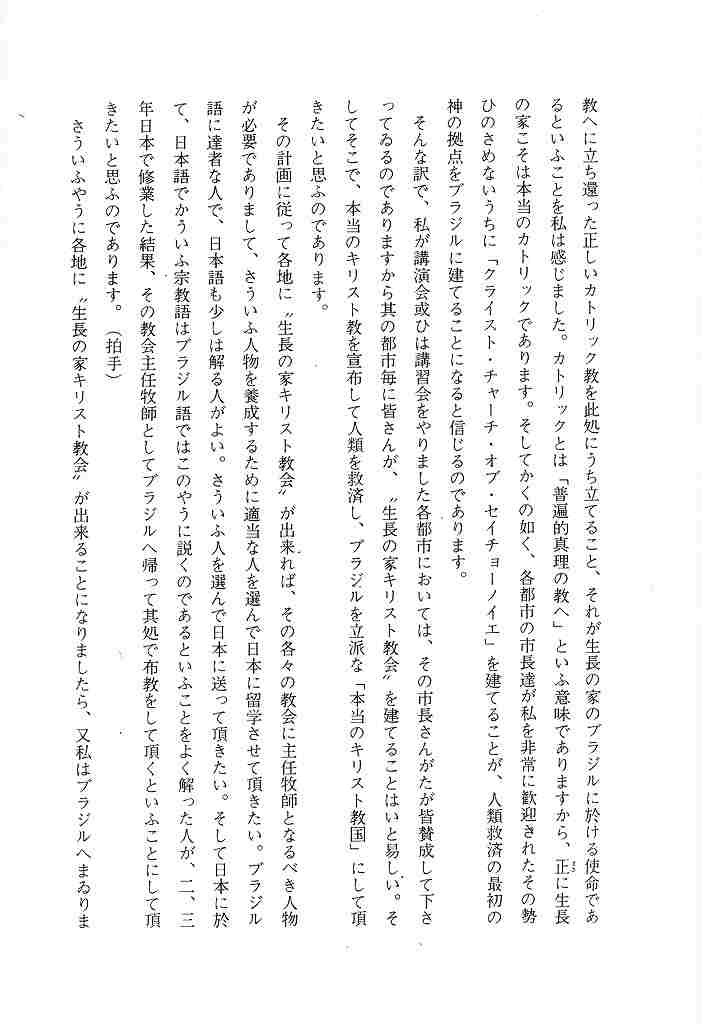 教へに立ち還った正しいカトリック教を此処にうち立てること、それが生長の家のブラジルに於ける使命であ
るといふことを私は感じました。カトリックとは「普遍的真理の教へ」といふ意味でありますから、正に生長
の家こそは本当のカトリックであります。そしてかくの如く、各都市の市長達が私を非常に歓迎されたその勢
ひのさめないうちに「クライスト・チャーチ・オブ・セイチョーノイエ」を建てることが、人類救済の最初の
神の拠点をブラジルに建てることになると信じるのであります。
そんな訳で、私が講演会或ひは講習会をやりました各都市においては、その市長さんがたが皆賛成して下さ
ってゐるのでありますから其の都市毎に皆さんが、〝生長の家キリスト教会〟を建てることはいと易しい。そ
してそこで、本当のキリスト教を宣布して人類を救済し、ブラジルを立派な「本当のキリスト教国」にして頂
きたいと思ふのであります。
その計画に従って各地に〝生長の家キリスト教会〟が出来れば、その各々の教会に主任牧師となるべき人物
が必要でありまして、さういふ人物を養成するために適当な人を選んで日本に留学させて頂きたい。ブラジル
語に達者な人で、日本語も少しは解る人がよい。さういふ人を選んで日本に送って頂きたい。そして日本に於
て、日本語でかういふ宗教語はブラジル語ではこのやうに説くのであるといふことをよく解った人が、二、三
年日本で修業した結果、その教会主任牧師としてブラジルへ帰って其処で布教をして頂くといふことにして頂
きたいと思ふのであります。（拍手）
さういふやうに各地に〝生長の家キリスト教会〟が出来ることになりましたら、又私はブラジルへまゐりま